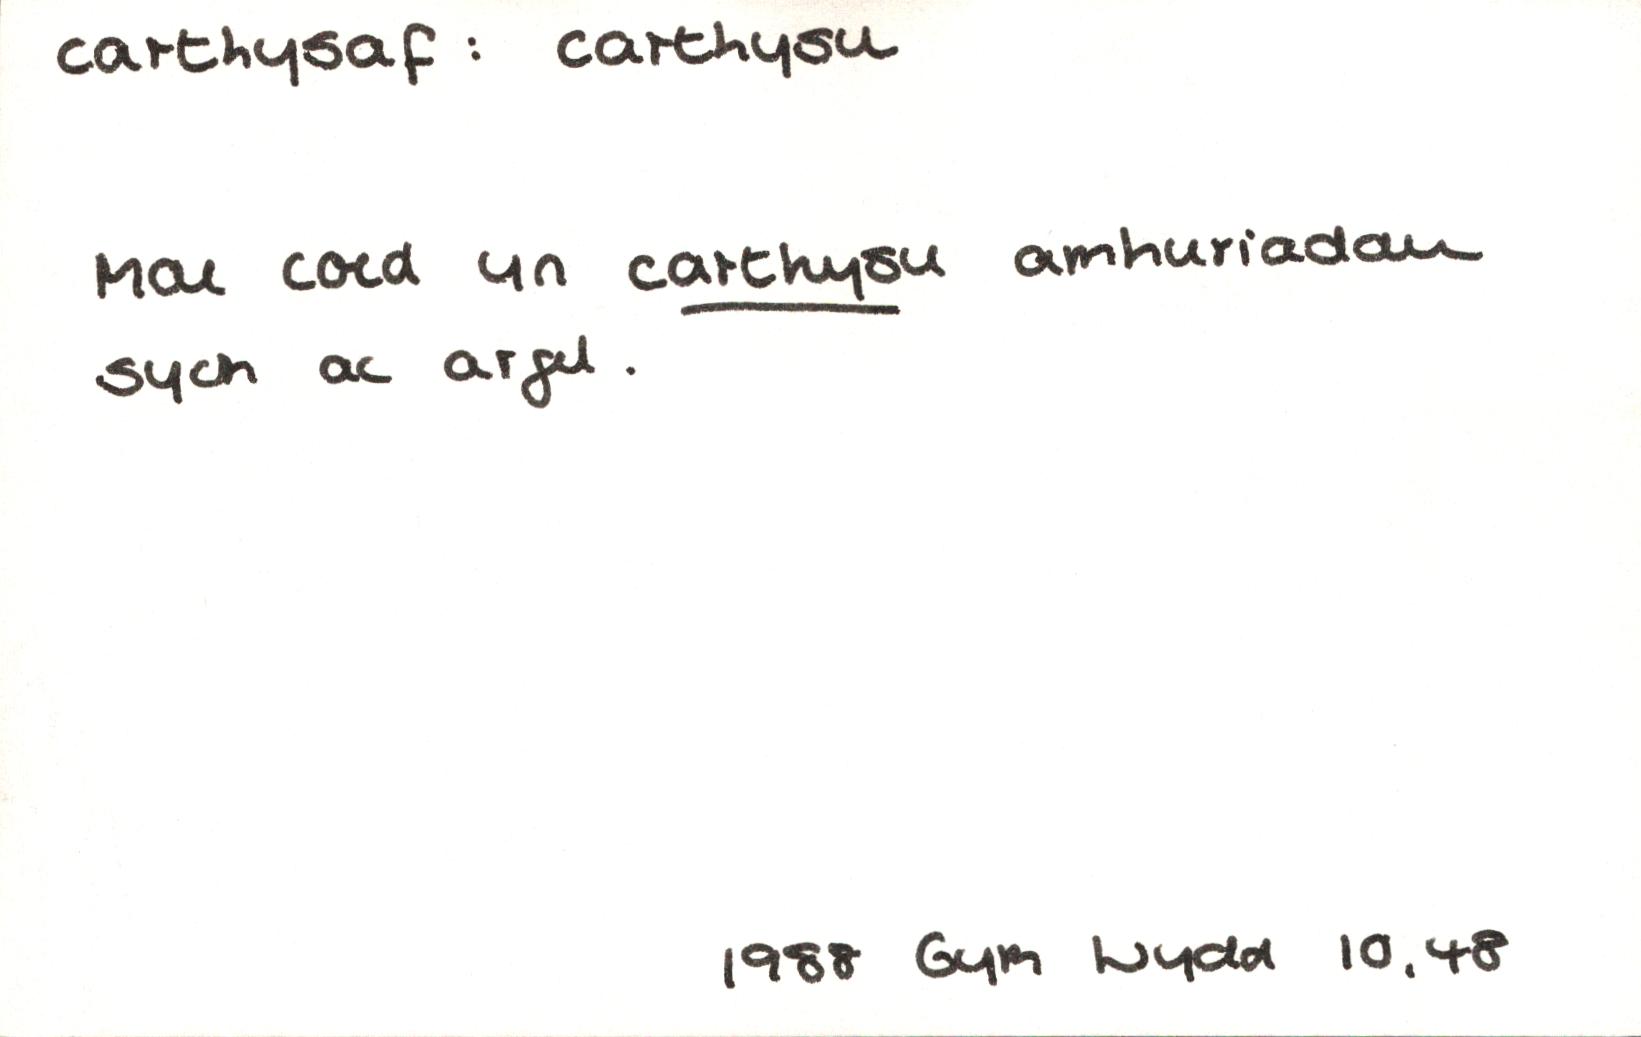 carthysaf: carthysu
Mae coed yn carthysu amhuriadau
sych ac argel.
1988 Gym Wydd 10.48